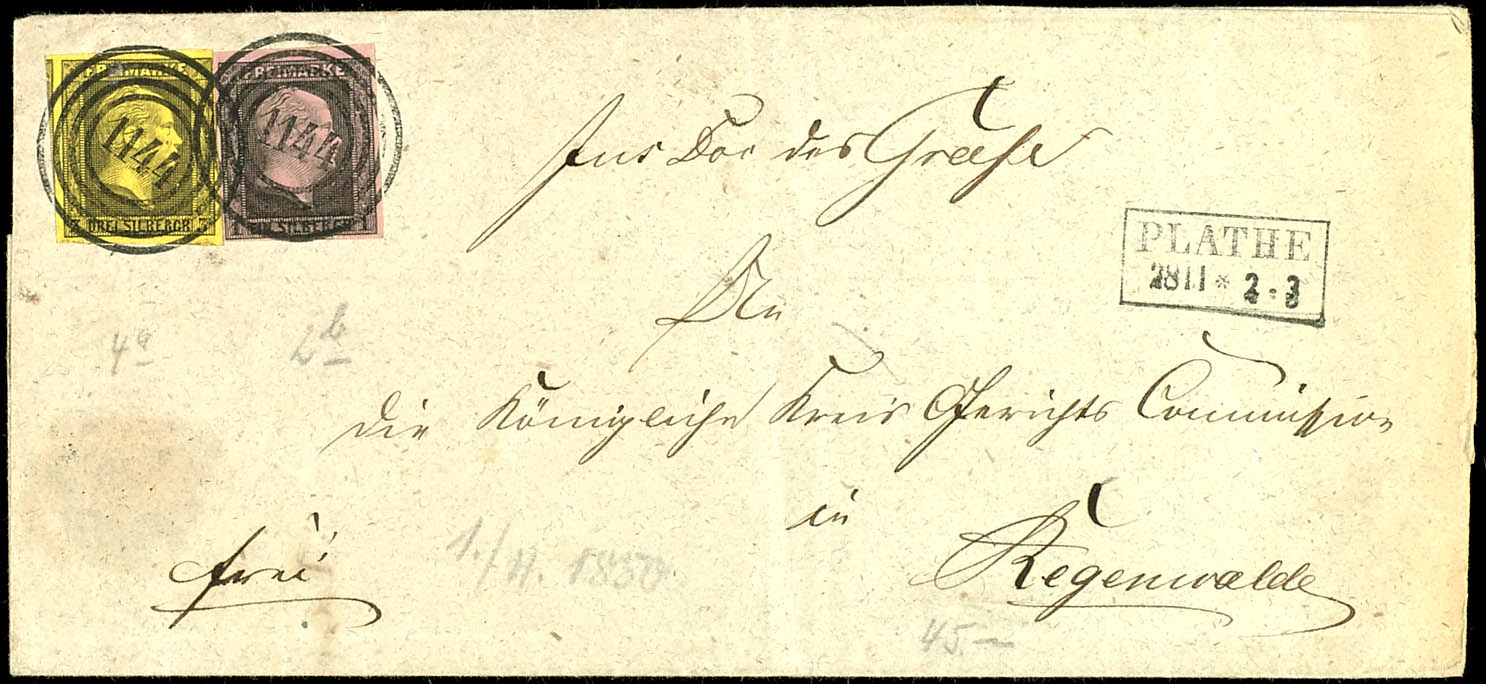 FREIMARKE
1144
3 DREI SILBERGR 3
FREIMARKE
1144
1 EIN SILBERGR 1
des
PLATHE
28 11 * 2-3
An
4a
2b
die Königliche Kreis Gerichts Commission
in
frei
1./11. 1850
Regenwalde
45.—